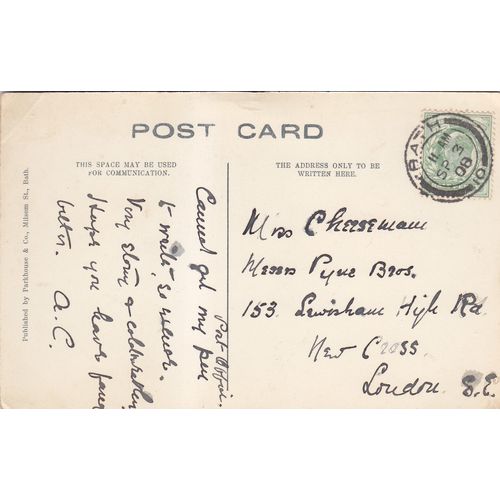 POST CARD
THIS SPACE MAY BE USED
FOR COMMUNICATION.
THE ADDRESS ONLY TO BE
WRITTEN HERE.
Published by Parkhouse & Co., Milsom St., Bath.
Post Office.
Cannot get my pen
to write, so
Very stormy & cold weather,
Hope you have fang
better. A.C.
Miss Cheeseman
Messrs Pyne Bros.
153, Lewisham High Rd.
New Cross.
London. S.E.
BATH
11
SP 3
08